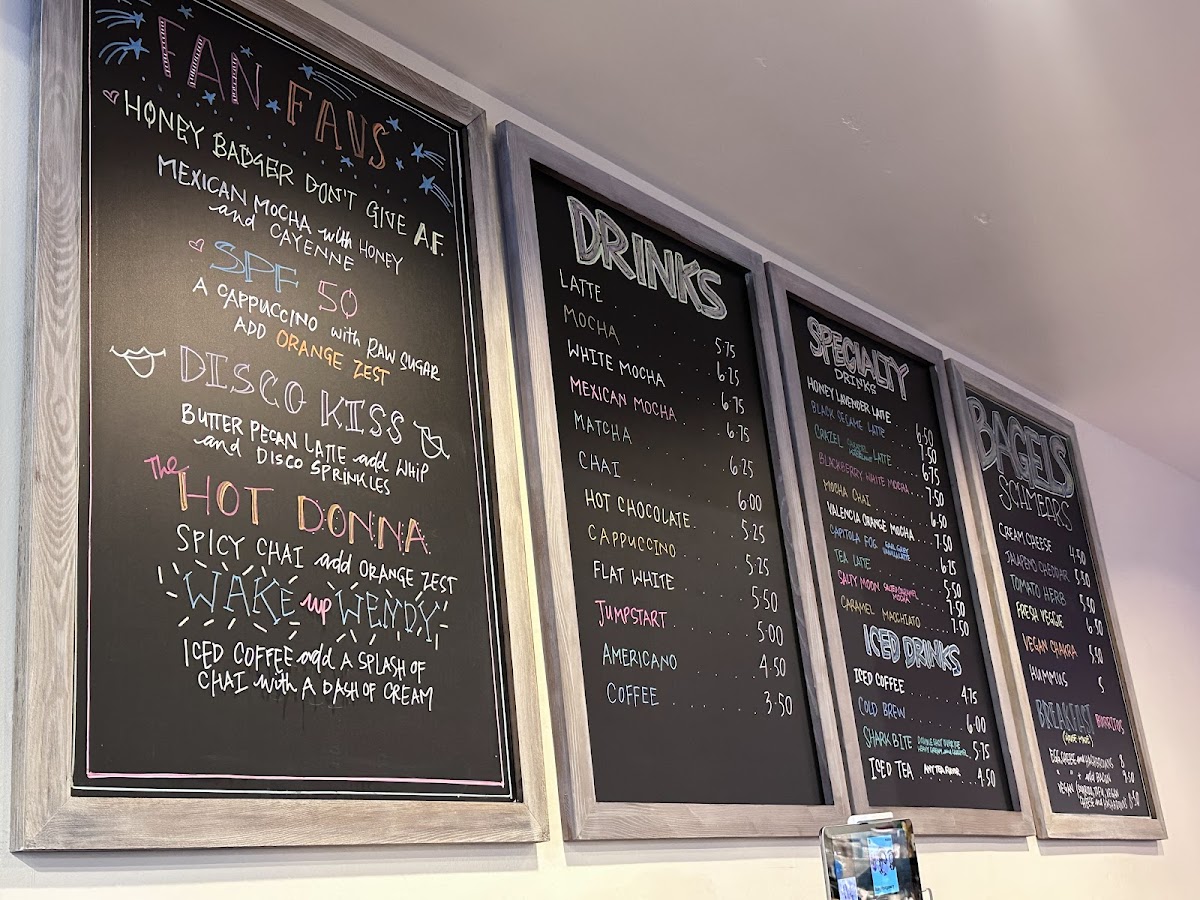 FAN FAVS
HONEY BADGER DON'T GIVE A.F.
MEXICAN MOCHA with HONEY
and CAYENNE
SPF 50
A CAPPUCCINO with RAW SUGAR
ADD ORANGE ZEST
DISCO KISS
BUTTER PECAN LATTE add WHIP
and DISCO SPRINKLES
The HOT DONNA
SPICY CHAI add ORANGE ZEST
WAKE up WENDY
ICED COFFEE add A SPLASH OF
CHAI with A DASH OF CREAM
DRINKS
LATTE 5.75
MOCHA 6.25
WHITE MOCHA 6.75
MEXICAN MOCHA 6.75
MATCHA 6.25
CHAI 6.00
HOT CHOCOLATE 5.25
CAPPUCCINO 5.25
FLAT WHITE 5.50
JUMPSTART 5.00
AMERICANO 4.50
COFFEE 3.50
SPECIALTY
DRINKS
HONEY LAVENDER LATTE 6.50
BLACK SESAME LATTE 7.50
LATTE 6.75
BLACKBERRY WHITE MOCHA 7.50
MOCHA CHAI 6.50
VALENCIA ORANGE MOCHA 7.50
CAPITOLA FOG EARL GREY VANILLA LATTE 6.75
TEA LATTE 5.50
SALTY MOON SALTED CARAMEL MOCHA 7.50
CARAMEL MACCHIATO 7.50
ICED DRINKS
ICED COFFEE 4.75
COLD BREW 6.00
SHARK BITE 5.75
ICED TEA ANY TEA FLAVOR 4.50
BAGELS
SCHMEARS
CREAM CHEESE 4.50
JALAPENO CHEDDAR 5.50
TOMATO HERB 5.50
FRESH VEGGIE 6.50
VEGAN CHAKRA 5.50
HUMMUS 5
BREAKFAST BURRITOS
(HOUSE MADE)
EGG, CHEESE and HASHBROWNS 8
" " " and BACON 9.50
VEGAN TOFU, VEGAN
CHEESE and HASHBROWNS 8.50